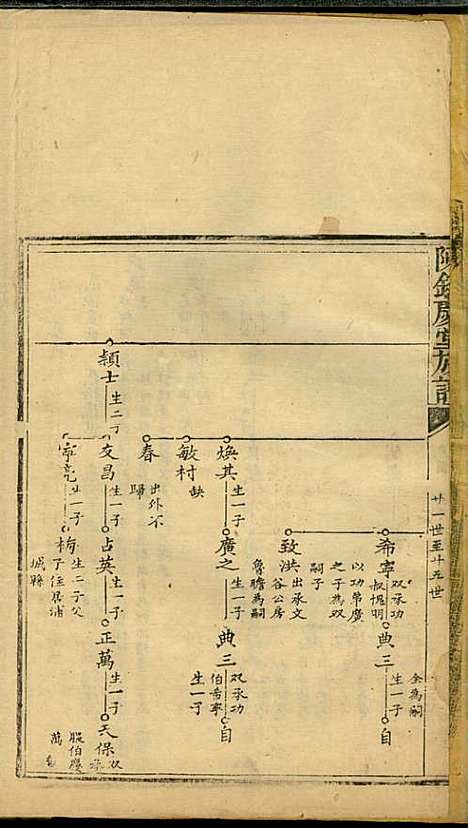 陳錫慶堂族譜
廿一世至廿五世
希寧
双承功
叔愧明
典三
生一子
金為嗣
自
以功帝廣
之子為双
嗣子
致洪
出承文
谷公房
魯瞻為嗣
煥其
生一子
廣之
生一子
典三
生一子
双承功
伯希寧
自
敏村
缺
春
出外不
歸
穎士
生二子
文昌
生一子
占英
生一子
正萬
生一子
天保
双
承
服伯
萬
寧亮
生一子
梅
生二子父
子住居浦
城縣